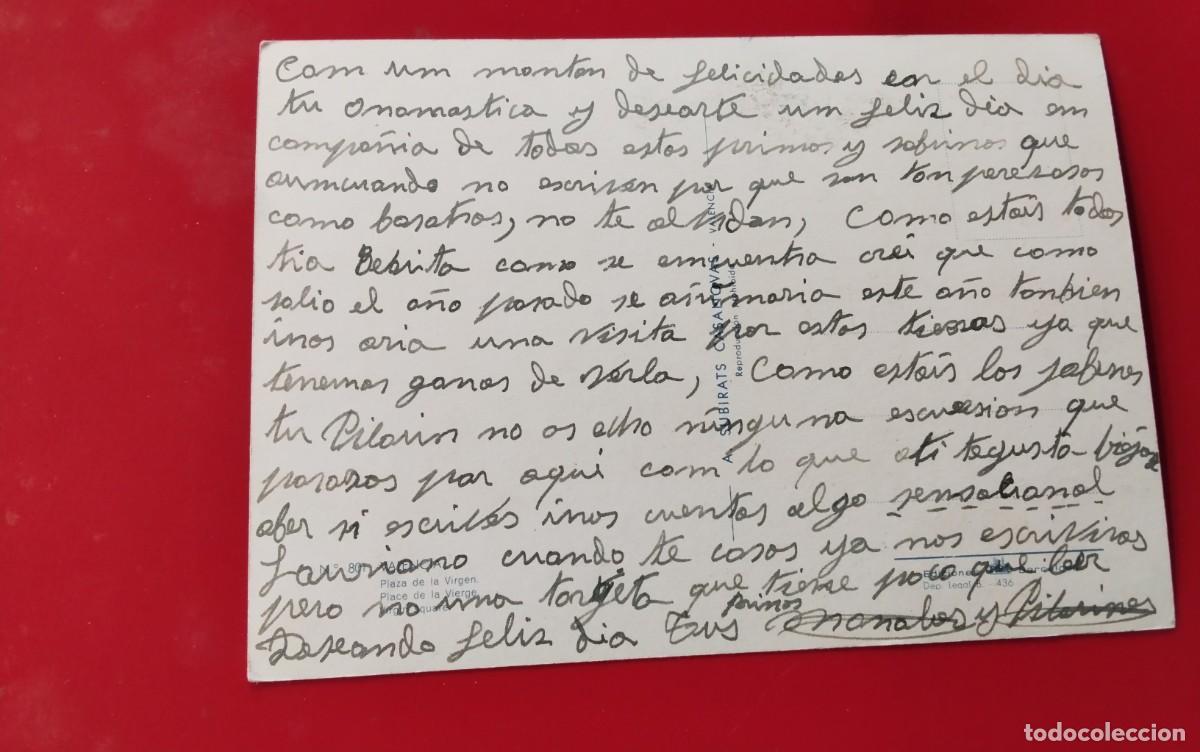 Com um monton de felicidades en el dia
tu Onomastica y desearte um feliz dia em
compañia de todos estos primos y sobrinos que
aumcuando no escriben por que son ton perezosos
como bosotros, no te olbidan, Como estais todos
tia Bebrita como se emcuentra crei que como
salio el año pasado se animaria este año tonbien
inos aria una visita por estos tierras ya que
tenemos ganas de verla, Como estais los
tu Pilarin no as echo ninguna escursion que
por aqui com lo que ati tegusta
aber si escribes inos cuentas algo sensacional
Lauriano cuando te casas ya nos escribiras
pero no una targeta que tiene poco que leer
Deseando feliz dia Tus primos Manolos y Pilarines
A. SUBIRATS CASANOVAS - VALENCIA
Reproducción prohibida
N.º 801 VALENCIA
Plaza de la Virgen.
Place de la Vierge.
Dep. legal B. - 436
todocoleccion